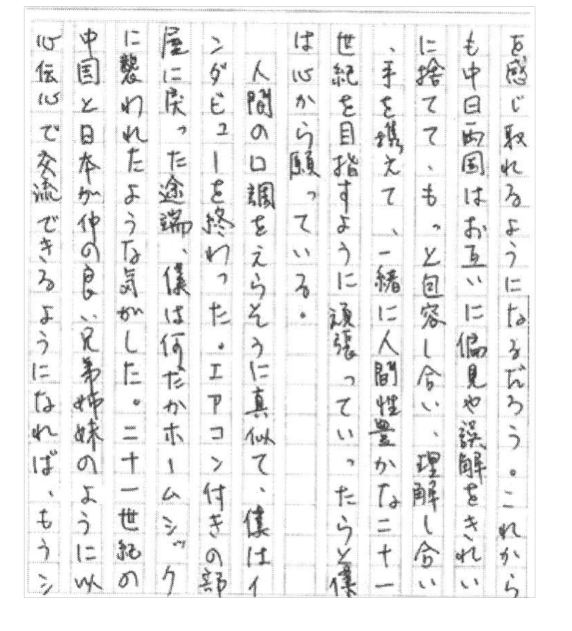 を感じ取れるようになるだろう。これから
も中日両国はお互いに偏見や誤解をきれい
に捨てて、もっと包容し合い、理解し合い
、手を携えて、一緒に人間性豊かな二十一
世紀を目指すように頑張っていったらと僕
は心から願っている。
人間の口調をえらそうに真似て、僕はイ
ンタビューを終わった。エアコン付きの部
屋に戻った途端、僕は何だかホームシック
に襲われたような気がした。二十一世紀の
中国と日本が仲の良い兄弟姉妹のように以
心伝心で交流できるようになれば、もうシ